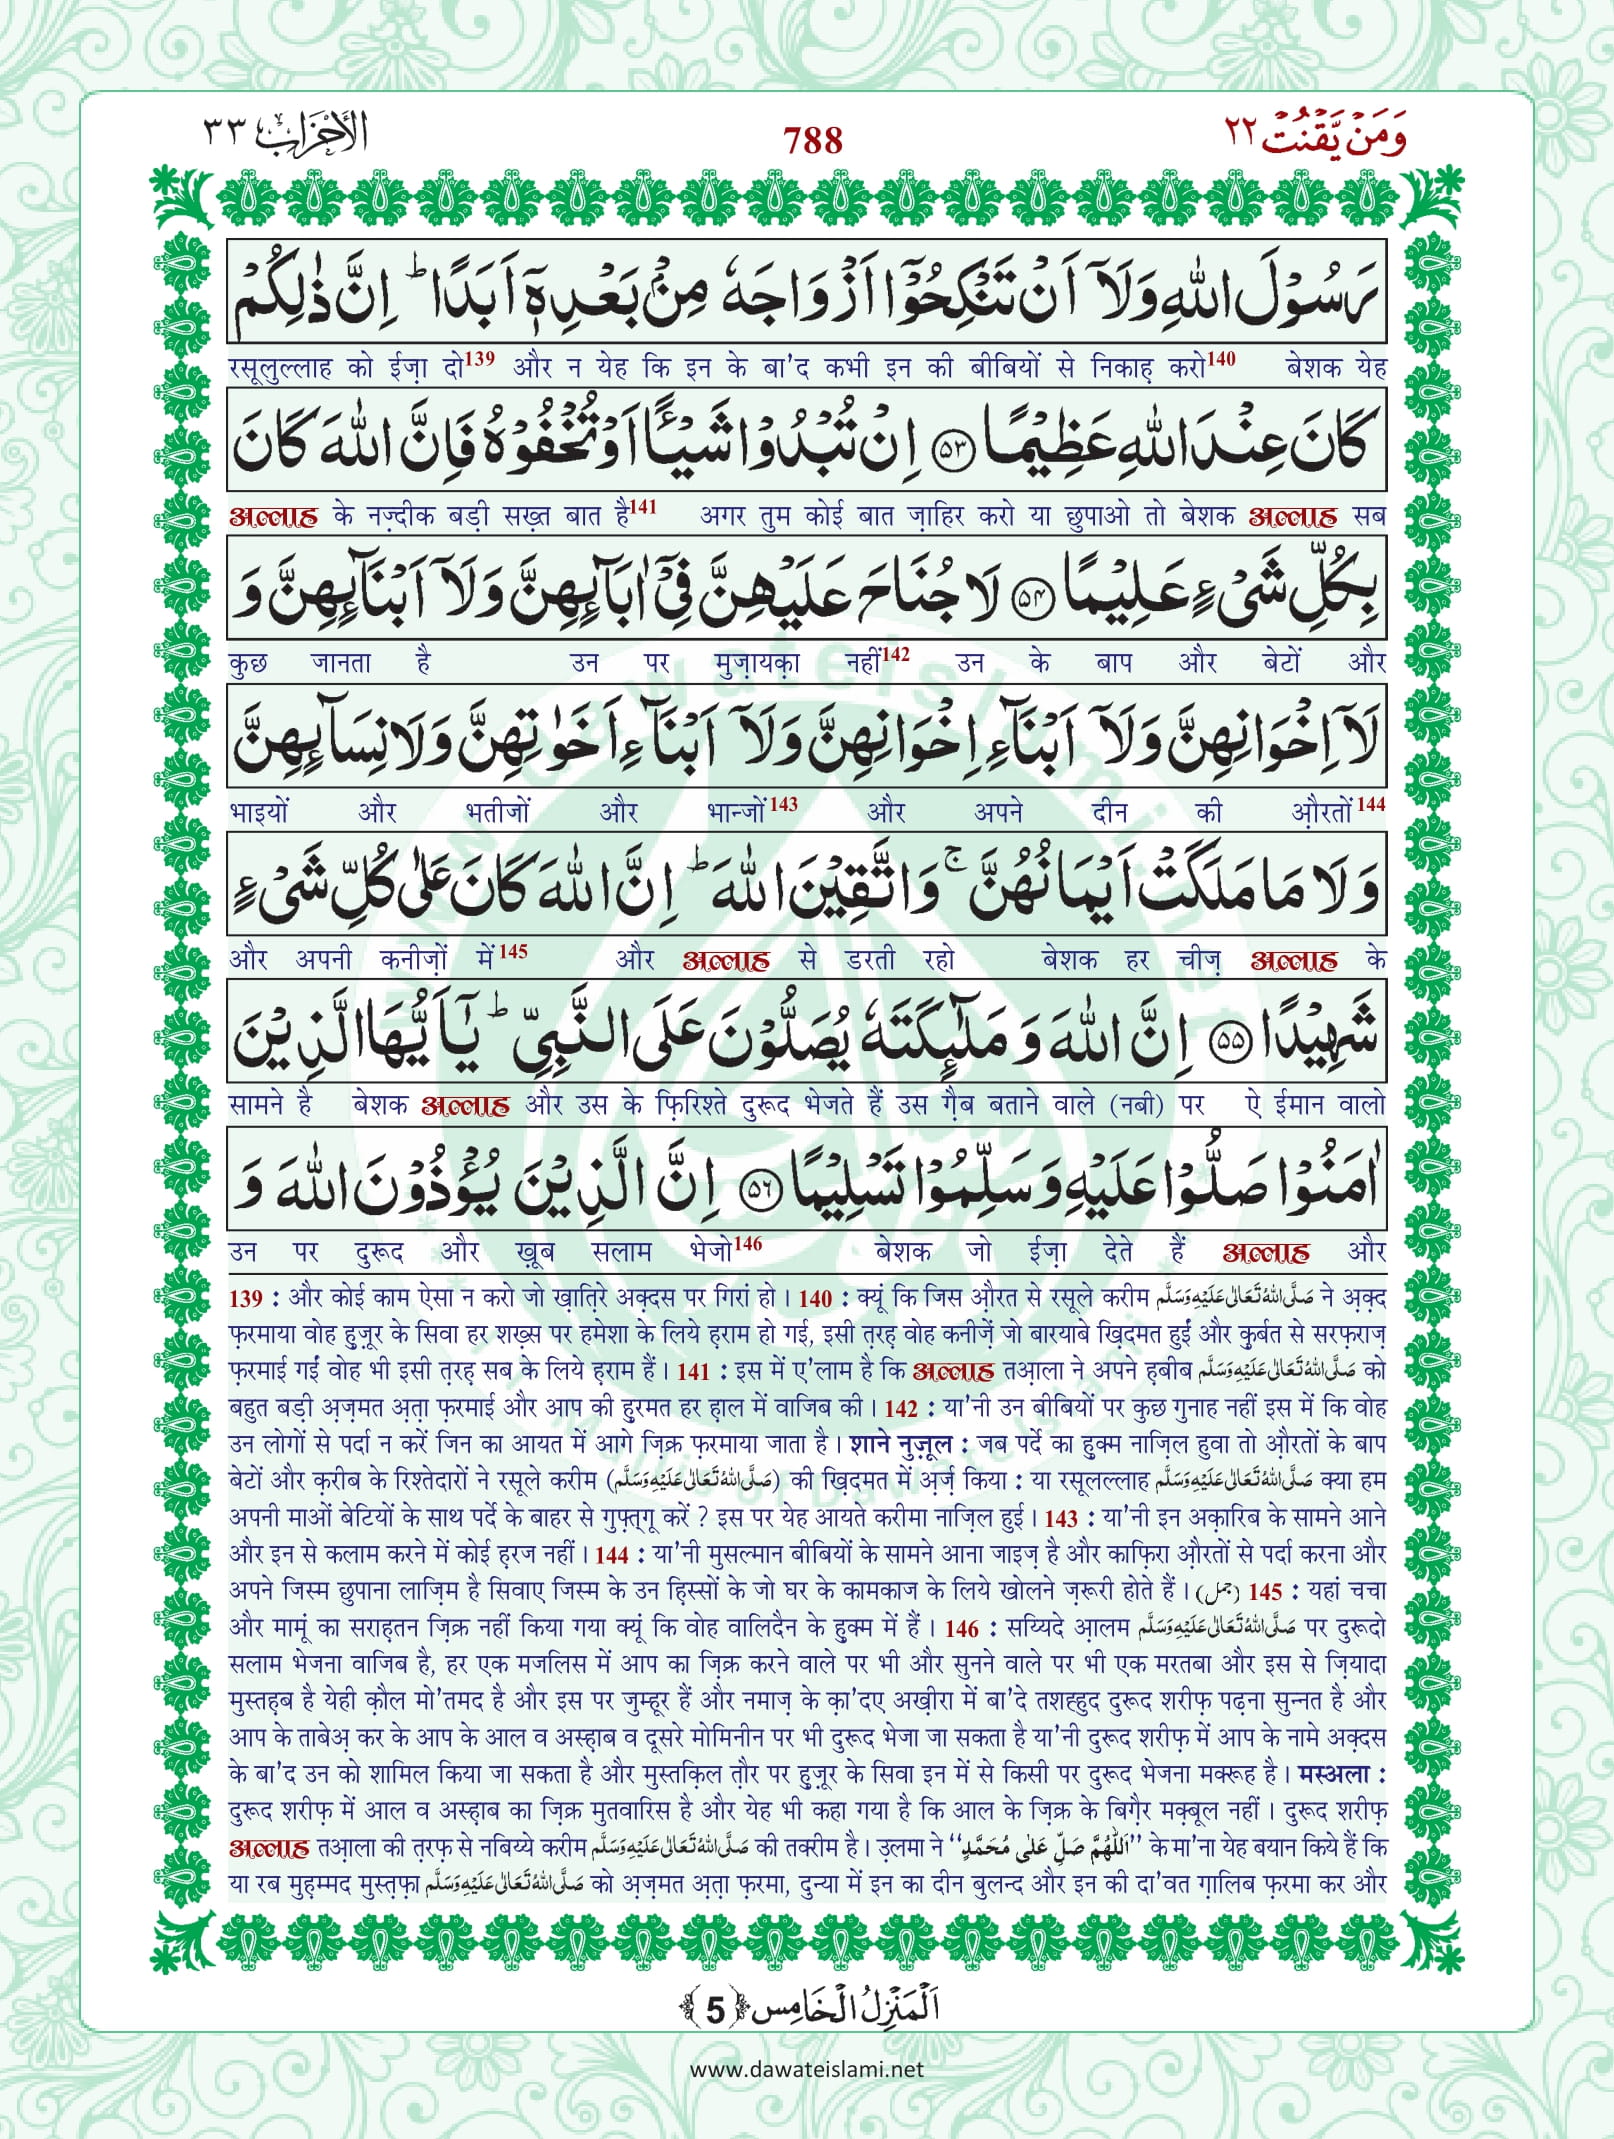 وَمَنْ يَّقْنُتْ ٢٢
788
الْاَحْزَاب ٣٣
رَسُوْلَ اللّٰهِ وَلَاۤ اَنْ تَنْكِحُوْۤا اَزْوَاجَهٗ مِنْۢ بَعْدِهٖۤ اَبَدًا ؕ اِنَّ ذٰلِكُمْ
रसूलुल्लाह को ईज़ा दो139 और न येह कि इन के बा'द कभी इन की बीबियों से निकाह़ करो140 बेशक येह
كَانَ عِنْدَ اللّٰهِ عَظِيْمًا ﴿۵۳﴾ اِنْ تُبْدُوْا شَيْـًٔا اَوْ تُخْفُوْهُ فَاِنَّ اللّٰهَ كَانَ
अल्लाह के नज़्दीक बड़ी सख़्त बात है141 अगर तुम कोई बात ज़ाहिर करो या छुपाओ तो बेशक अल्लाह सब
بِكُلِّ شَیْءٍ عَلِيْمًا ﴿۵۴﴾ لَا جُنَاحَ عَلَيْهِنَّ فِیْۤ اٰبَآىِٕهِنَّ وَلَاۤ اَبْنَآىِٕهِنَّ وَ
कुछ जानता है उन पर मुज़ायक़ा नहीं142 उन के बाप और बेटों और
لَاۤ اِخْوَانِهِنَّ وَلَاۤ اَبْنَآءِ اِخْوَانِهِنَّ وَلَاۤ اَبْنَآءِ اَخَوٰتِهِنَّ وَلَا نِسَآىِٕهِنَّ
भाइयों और भतीजों और भान्जों143 और अपने दीन की औ़रतों144
وَلَا مَا مَلَكَتْ اَيْمَانُهُنَّ ۚ وَاتَّقِيْنَ اللّٰهَ ؕ اِنَّ اللّٰهَ كَانَ عَلٰی كُلِّ شَیْءٍ
और अपनी कनीज़ों में145 और अल्लाह से डरती रहो बेशक हर चीज़ अल्लाह के
شَهِيْدًا ﴿۵۵﴾ اِنَّ اللّٰهَ وَمَلٰٓىِٕكَتَهٗ يُصَلُّوْنَ عَلَی النَّبِیِّ ؕ يٰۤاَيُّهَا الَّذِيْنَ
सामने है बेशक अल्लाह और उस के फ़िरिश्ते दुरूद भेजते हैं उस ग़ैब बताने वाले (नबी) पर ऐ ईमान वालो
اٰمَنُوْا صَلُّوْا عَلَيْهِ وَسَلِّمُوْا تَسْلِيْمًا ﴿۵۶﴾ اِنَّ الَّذِيْنَ يُؤْذُوْنَ اللّٰهَ وَ
उन पर दुरूद और ख़ूब सलाम भेजो146 बेशक जो ईज़ा देते हैं अल्लाह और
139 : और कोई काम ऐसा न करो जो ख़ात़िरे अक़्दस पर गिरां हो। 140 : क्यूं कि जिस औ़रत से रसूले करीम صَلَّى اللهُ تَعَالٰى عَلَيْهِ وَسَلَّم ने अ़क़्द
फ़रमाया वोह हुज़ूर के सिवा हर शख़्स पर हमेशा के लिये ह़राम हो गई, इसी त़रह़ वोह कनीज़ें जो बारयाबे ख़िदमत हुईं और कुर्बत से सरफराज़
फ़रमाई गईं वोह भी इसी त़रह़ सब के लिये ह़राम हैं। 141 : इस में ए'लाम है कि अल्लाह तआ़ला ने अपने ह़बीब صَلَّى اللهُ تَعَالٰى عَلَيْهِ وَسَلَّم को
बहुत बड़ी अ़ज़मत अ़त़ा फ़रमाई और आप की हुरमत हर ह़ाल में वाजिब की। 142 : या'नी उन बीबियों पर कुछ गुनाह नहीं इस में कि वोह
उन लोगों से पर्दा न करें जिन का आयत में आगे ज़िक्र फ़रमाया जाता है। शाने नुज़ूल : जब पर्दे का हुक्म नाज़िल हुवा तो औ़रतों के बाप
बेटों और क़रीब के रिश्तेदारों ने रसूले करीम (صَلَّى اللهُ تَعَالٰى عَلَيْهِ وَسَلَّم) की ख़िदमत में अ़र्ज़ किया : या रसूलल्लाह صَلَّى اللهُ تَعَالٰى عَلَيْهِ وَسَلَّم क्या हम
अपनी माओं बेटियों के साथ पर्दे के बाहर से गुफ़्त्गू करें ? इस पर येह आयते करीमा नाज़िल हुई। 143 : या'नी इन अक़ारिब के सामने आने
और इन से कलाम करने में कोई ह़रज नहीं। 144 : या'नी मुसल्मान बीबियों के सामने आना जाइज़ है और काफ़िरा औ़रतों से पर्दा करना और
अपने जिस्म छुपाना लाज़िम है सिवाए जिस्म के उन ह़िस्सों के जो घर के कामकाज के लिये खोलने ज़रूरी होते हैं। (جمل) 145 : यहां चचा
और मामूं का सराह़तन ज़िक्र नहीं किया गया क्यूं कि वोह वालिदैन के हुक्म में हैं। 146 : सय्यिदे आ़लम صَلَّى اللهُ تَعَالٰى عَلَيْهِ وَسَلَّم पर दुरूदो
सलाम भेजना वाजिब है, हर एक मजलिस में आप का ज़िक्र करने वाले पर भी और सुनने वाले पर भी एक मरतबा और इस से ज़ियादा
मुस्तह़ब है येही क़ौल मो'तमद है और इस पर जुम्हूर हैं और नमाज़ के क़ा'दए अख़ीरा में बा'दे तशह्हुद दुरूद शरीफ़ पढ़ना सुन्नत है और
आप के ताबेअ़ कर के आप के आल व अस्ह़ाब व दूसरे मोमिनीन पर भी दुरूद भेजा जा सकता है या'नी दुरूद शरीफ़ में आप के नामे अक़्दस
के बा'द उन को शामिल किया जा सकता है और मुस्तक़िल त़ौर पर हुज़ूर के सिवा इन में से किसी पर दुरूद भेजना मक्रूह है। मस्अला :
दुरूद शरीफ़ में आल व अस्ह़ाब का ज़िक्र मुतवारिस है और येह भी कहा गया है कि आल के ज़िक्र के बिग़ैर मक़्बूल नहीं। दुरूद शरीफ़
अल्लाह तआ़ला की त़रफ़ से नबिय्ये करीम صَلَّى اللهُ تَعَالٰى عَلَيْهِ وَسَلَّم की तक्रीम है। उ़लमा ने ‘‘اَللّٰهُمَّ صَلِّ عَلٰى مُحَمَّدٍ’’ के मा'ना येह बयान किये हैं कि
या रब मुह़म्मद मुस्त़फ़ा صَلَّى اللهُ تَعَالٰى عَلَيْهِ وَسَلَّم को अ़ज़मत अ़त़ा फ़रमा, दुन्या में इन का दीन बुलन्द और इन की दा'वत ग़ालिब फ़रमा कर और
اَلْمَنْزِلُ الْخَامِس ﴿5﴾
www.dawateislami.net